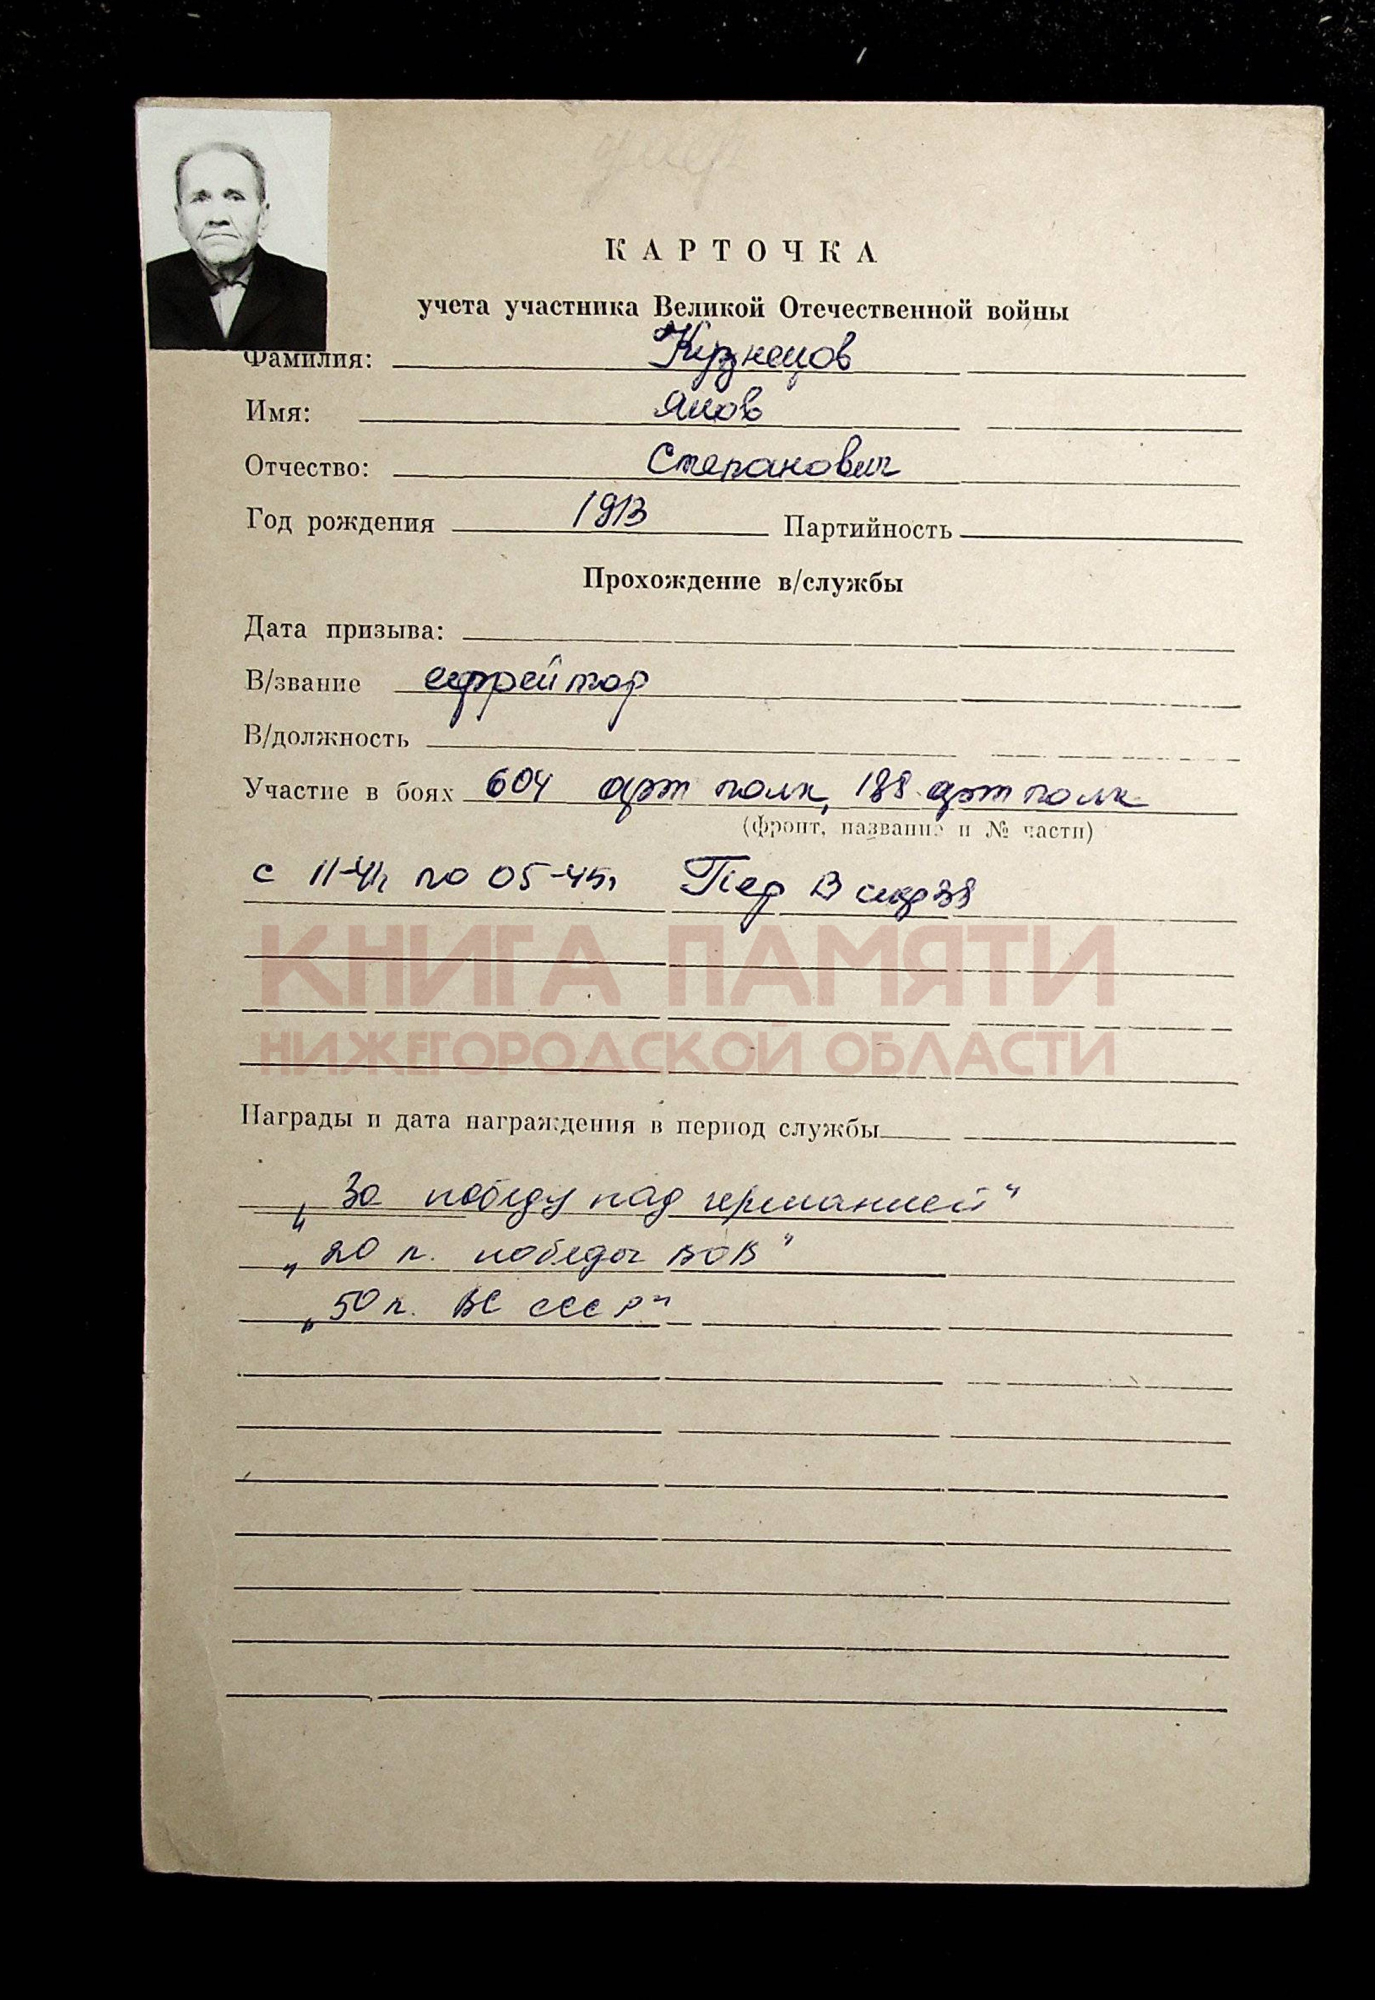 умер
КАРТОЧКА
учета участника Великой Отечественной войны
Фамилия: Кузнецов
Имя: Яков
Отчество: Степанович
Год рождения 1913 Партийность
Прохождение в/службы
Дата призыва:
В/звание ефрейтор
В/должность
Участие в боях 604 арт полк, 188 арт полк
(фронт, название и № части)
с 11-41г по 05-45г Пер В
КНИГА ПАМЯТИ
НИЖЕГОРОДСКОЙ ОБЛАСТИ
Награды и дата награждения в период службы
„За победу над германией“
„20 л. победы ВОВ“
„50 л. ВС СССР“